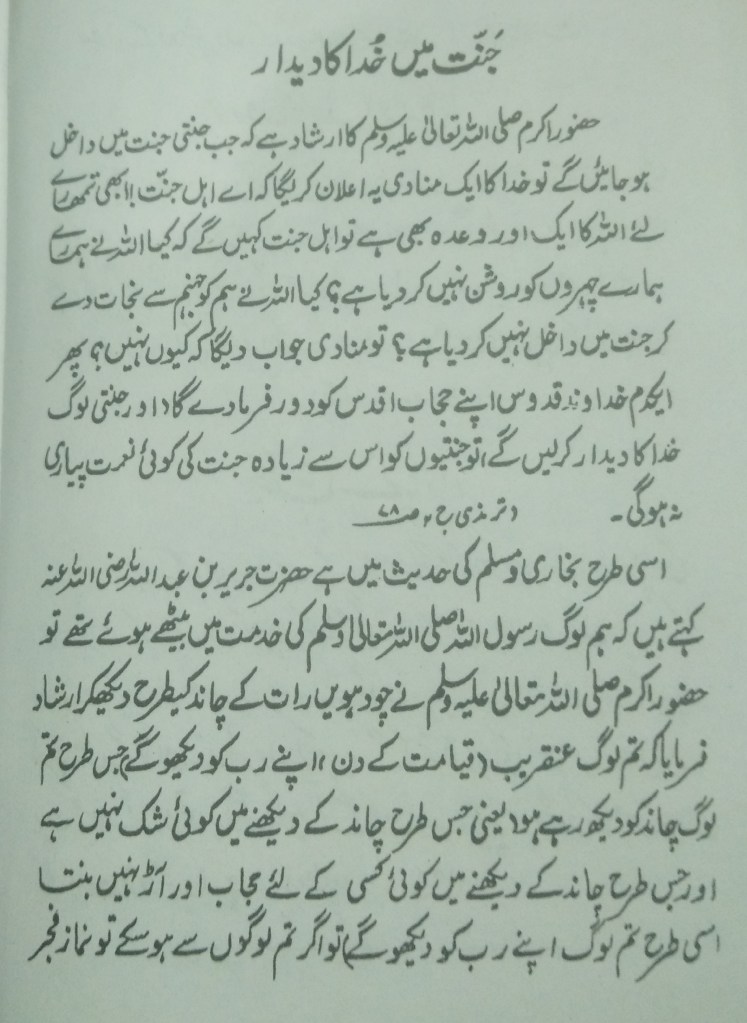 جنّت میں خُدا کا دیدار
حضور اکرم صلی اللہ تعالیٰ علیہ وسلم کا ارشاد ہے کہ جب جنتی جنت میں داخل
ہو جائیں گے تو خدا کا ایک منادی یہ اعلان کریگا کہ اے اہل جنّت! ابھی تمھارے
لئے اللہ کا ایک اور وعدہ بھی ہے تو اہل جنت کہیں گے کہ کیا اللہ نے ہمارے
ہمارے چہروں کو روشن نہیں کر دیا ہے؟ کیا اللہ نے ہم کو جہنم سے نجات دے
کر جنت میں داخل نہیں کر دیا ہے؟ تو منادی جواب دیگا کہ کیوں نہیں؟ پھر
ایکدم خداوند قدوس اپنے حجاب اقدس کو دور فرما دے گا (اور جنتی لوگ
خدا کا دیدار کر لیں گے) تو جنتیوں کو اس سے زیادہ جنت کی کوئی نعمت پیاری
نہ ہوگی۔ (ترمذی ج ۲ ص ۷۸
اسی طرح بخاری و مسلم کی حدیث میں ہے حضرت جریر بن عبد اللہ رضی اللہ عنہ
کہتے ہیں کہ ہم لوگ رسول اللہ صلی اللہ تعالیٰ وسلم کی خدمت میں بیٹھے ہوئے تھے تو
حضور اکرم صلی اللہ تعالیٰ علیہ وسلم نے چودہویں رات کے چاند کیطرح دیکھکر ارشاد
فرمایا کہ تم لوگ عنقریب (قیامت کے دن) اپنے رب کو دیکھو گے) جس طرح تم
لوگ چاند کو دیکھ رہے ہو (یعنی جس طرح چاند کے دیکھنے میں کوئی شک نہیں ہے
اور جس طرح چاند کے دیکھنے میں کوئی کسی کے لئے حجاب اور آڑ نہیں بنتا
اسی طرح تم لوگ اپنے رب کو دیکھو گے) تو اگر تم لوگوں سے ہو سکے تو نماز فجر